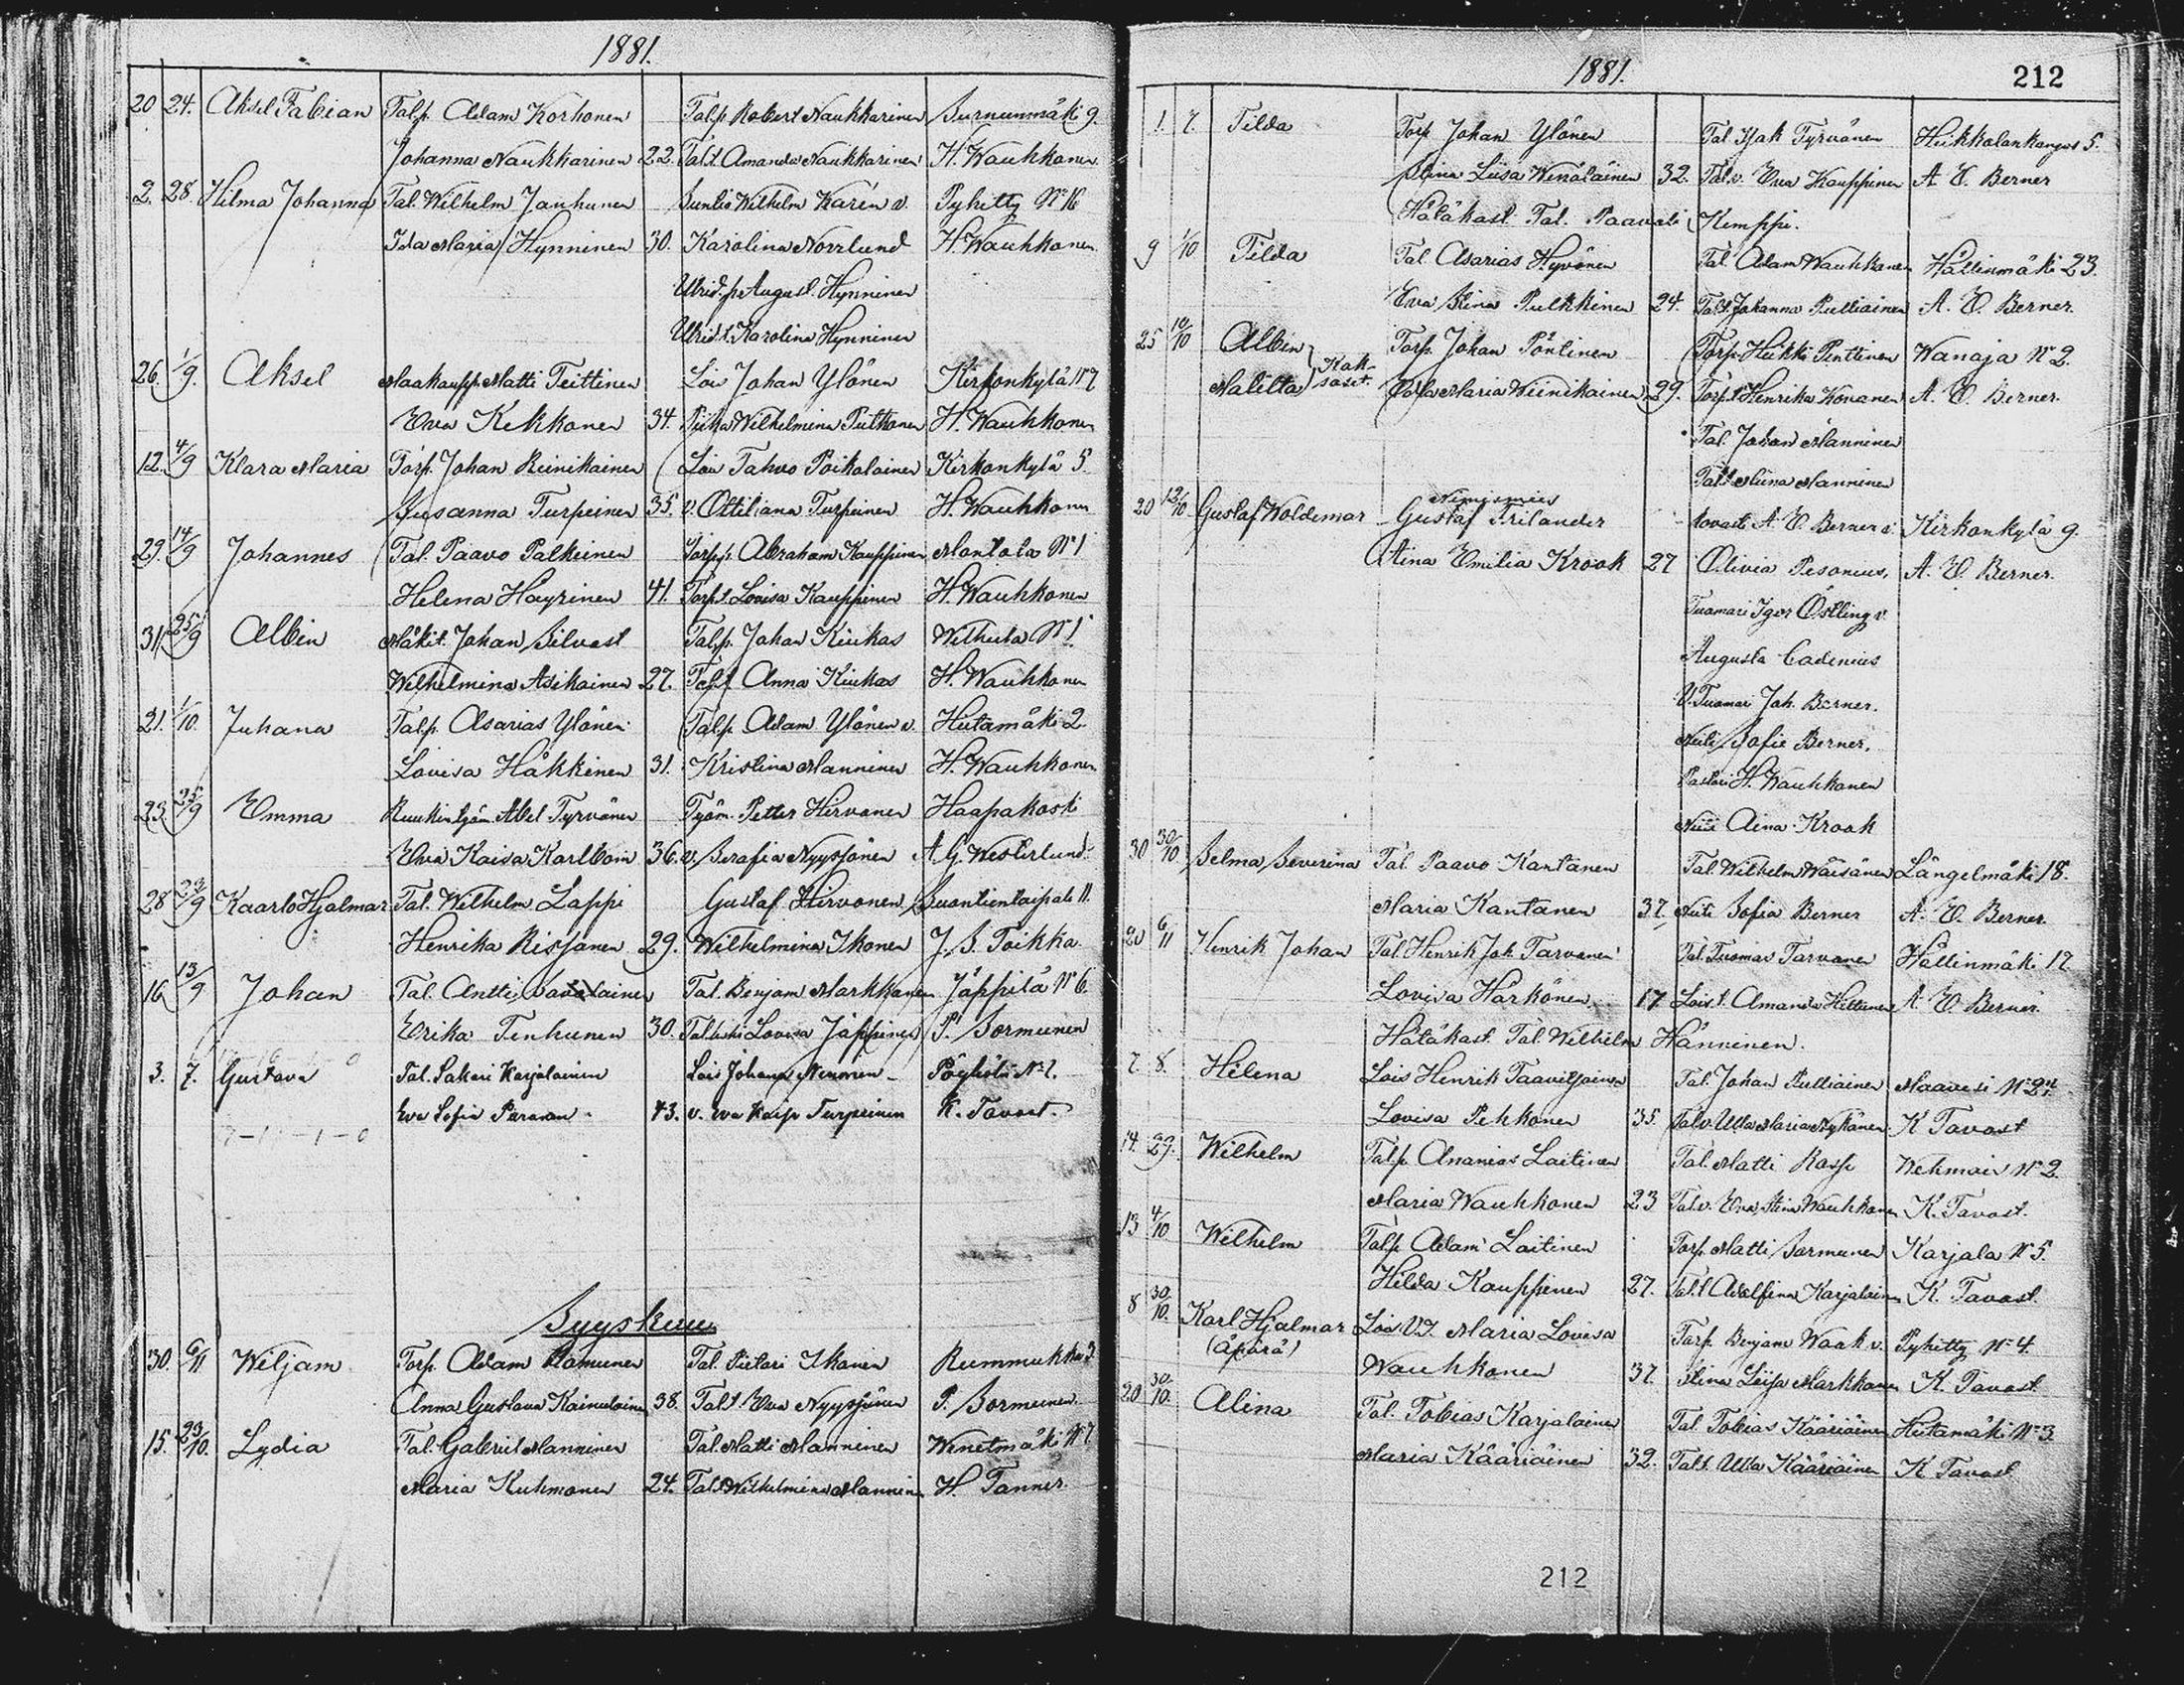 1881.
20 24. Aksel Fabian Talp. Adam Korhonen Talp Robert Naukkarinen Surnunmäki 9.
Johanna Naukkarinen 22. Tal.t. Amanda Naukkarinen H. Wauhkonen
2. 28. Hilma Johanna Tal. Wilhelm Janhunen Wilhelm Karén v. Pyhitty N:o 16
Ida Maria Hynninen 30. Karolina Norrlund H. Wauhkonen
August Hynninen
Karolina Hynninen
26. 1/9. Aksel Maakaupp. Matti Teittinen Lois Johan Ylönen Kirkonkylä N:o 7
Eva Kekkonen 34. Piika Wilhelmina Pulkkonen H. Wauhkonen
12. 4/9 Klara Maria Torp. Johan Reinikainen Lois Tahvo Poikolainen Kirkonkylä 5.
Susanna Turpeinen 35. v. Ottiliana Turpeinen H. Wauhkonen
29. 14/9 Johannes Tal. Paavo Palkeinen Torp.p. Abraham Kauppinen Montola N:o 1
Helena Häyrinen 41. Torp.t. Lovisa Kauppinen H. Wauhkonen
31. 25/9 Albin Mäkit. Johan Silvast Talp. Johan Kiukas Wilhula N:o 1
Wilhelmina Asikainen 27. Tal.t Anna Kiukas H. Wauhkonen
21. 1/10. Juhana Talp. Asarias Ylönen Talp Adam Ylönen v. Hutamäki 2
Lovisa Häkkinen 31. Kristina Manninen H. Wauhkonen
23. 25/9 Emma Ruukintyöm. Abel Tyrvänen Työm. Petter Hirvonen Haapakoski
Eva Kaisa Karlbom 36. v. Serafia Nyyssönen A. G. Westerlund.
28 23/9 Kaarlo Hjalmar Tal. Wilhelm Lappi Gustaf Hirvonen Suontientaipale 11.
Henrika Rissanen 29. Wilhelmina Ikonen J. S. Toikka
16 13/9 Johan Tal. Antti Savolainen Tal. Benjam Markkanen Jäppilä N:o 6.
Erika Tenhunen 30. Lovisa Jäppinen P. Sormunen
3. 7. Gustava Tal. Sakari Karjalainen Lois Johan
Eva Sofia 43. v. Eva Kaisa Turpeinen K. Tavast.
Syyskuu
30. 6/11 Wiljam Torp. Adam Hämunen Tal. Pietari Ikonen Rummukka 3
Anna Gustava Kainulainen 38. Tal.t Eva Nyyssönen P. Sormunen.
15. 23/10. Lydia Tal. Gabriel Manninen Tal. Matti Manninen Wenetmäki N:o 7
Maria Kuhmonen 24. Tal.t Wilhelmina Manninen H. Tanner.
1881.
212
1. 7. Tilda Torp Johan Ylönen Tal. Isak Tyrvänen Heikkolankangas 5.
Stina Liisa Wenäläinen 32. Tal.v. Eva Kauppinen A. E. Berner
Hätäkast. Tal. Paavali Kemppi.
9 1/10 Tilda Tal. Asarias Hyvönen Tal. Adam Wauhkonen Hällinmäki 23.
Eva Stina Pulkkinen 24. Tal.t. Johanna Pulliainen A. E. Berner.
25 10/10 Albin Torp. Johan Pöntinen Torp. Heikki Penttinen Wanaja N:o 2.
Malilta Kaksoset. Maria Wiinikainen 29. Torp.t Henrika Kovanen A. E. Berner.
Tal. Johan Manninen
Tal.t. Miina Manninen
20 13/10 Gustaf Woldemar Nimismies Gustaf Frilander Rovasti A. E. Berner v. Kirkonkylä 9.
Stina Emilia Krook 27 Olivia Pesonius. A. E. Berner.
Tuomari Igor Östling v.
Augusta Cadenius
V. Tuomari Joh. Berner.
Neiti Sofie Berner.
Pastori H. Wauhkonen
Neiti Aina Krook
30 30/10 Selma Severina Tal. Paavo Kantanen Tal. Wilhelm Wäisänen Längelmäki 18.
Maria Kantanen 37. Neiti Sofia Berner A. E. Berner
20 6/11 Henrik Johan Tal. Henrik Joh. Tarvanen Tal. Tuomas Tarvanen Hällinmäki 12
Lovisa Härkönen 17 Lois.t. Amanda A. E. Berner.
Hätäkast. Tal. Wilhelm Hänninen.
7 8. Helena Lois Henrik Taavitsainen Tal. Johan Pulliainen Maavesi N:o 24.
Lovisa Pekkonen 35. Tal.v. Ulla Maria Nykänen K Tavast
14. 29. Wilhelm Talp. Ananias Laitinen Tal. Matti Rossi Wehmais N:o 2.
Maria Wauhkonen 23 Tal.v. Eva Stina Wauhkonen K. Tavast.
13 4/10 Wilhelm Talp Adam Laitinen Torp. Matti Sormunen Karjala N:o 5.
Hilda Kauppinen 27. Tal.t Adolfina Karjalainen K. Tavast.
8 30/10. Karl Hjalmar Lois Maria Lovisa Torp. Benjam Waak v. Pyhitty N:o 4.
(äpärä) Wauhkonen 37. Stina Liisa Markkanen K. Tavast.
20 30/10. Alina Tal. Tobias Karjalainen Tal. Tobias Kääriäinen Hutamäki N:o 3.
Maria Kääriäinen 32. Tal.t. Ulla Kääriäinen K Tavast
212